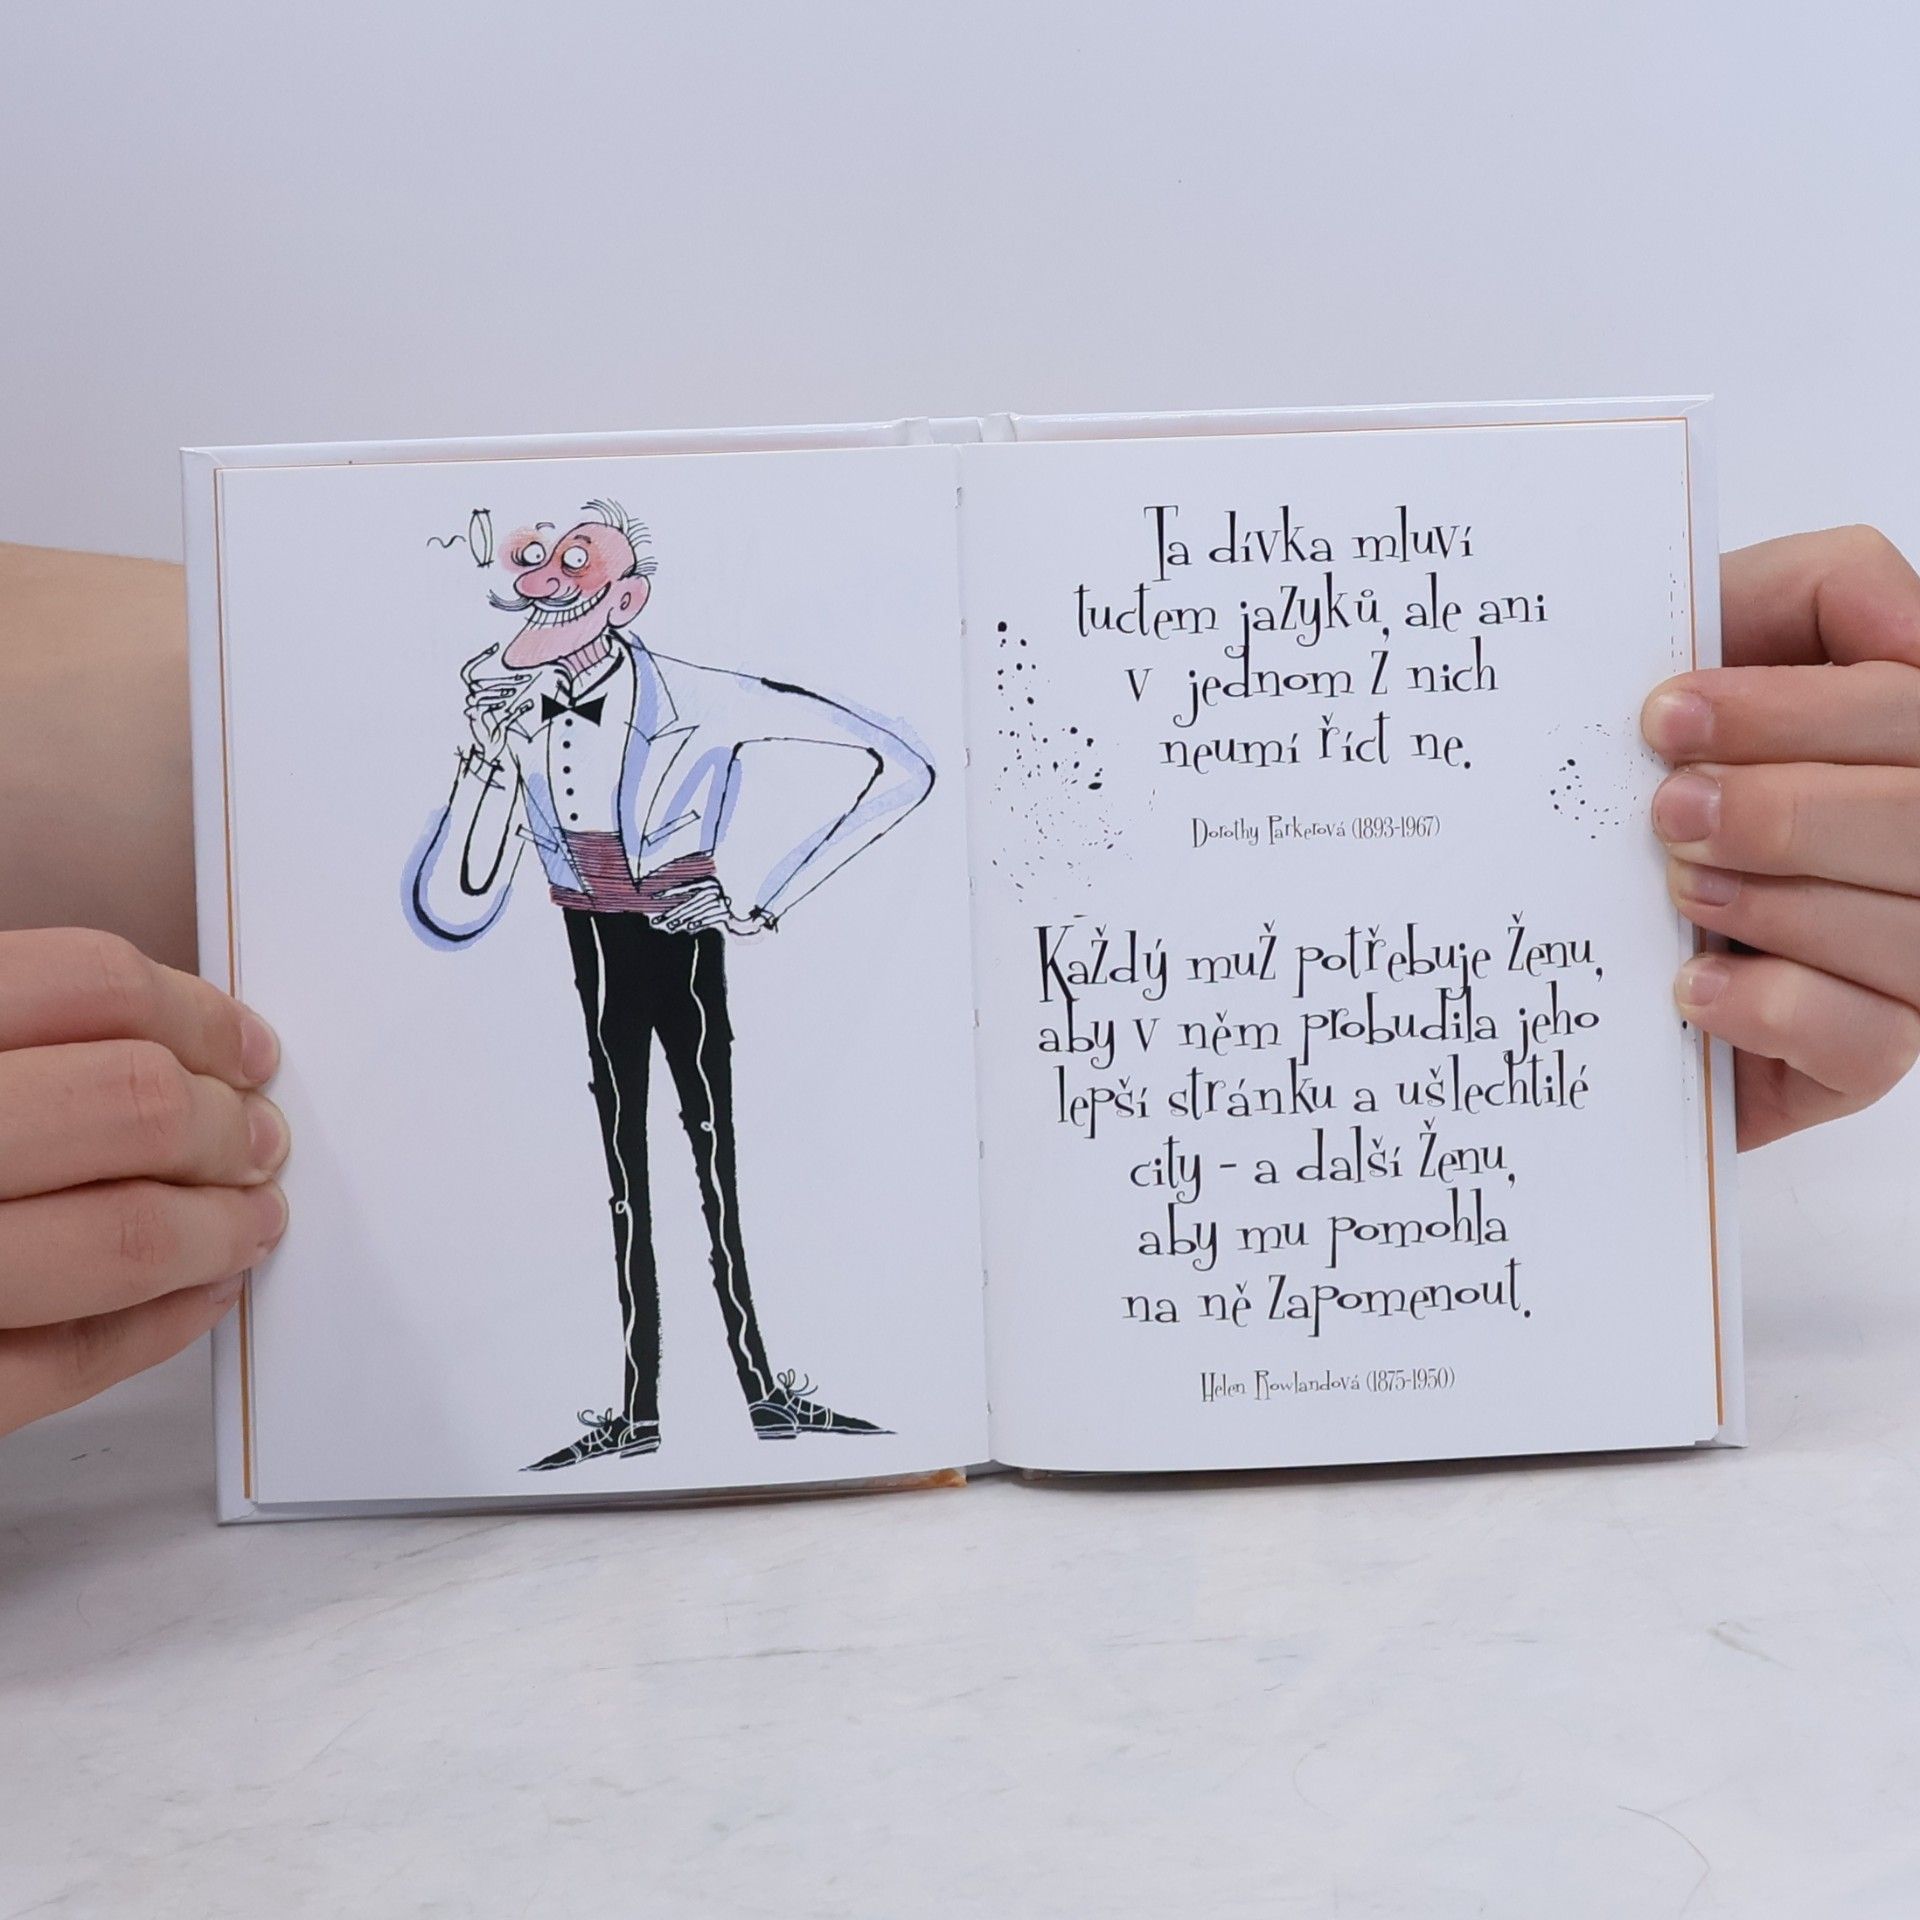 Ta dívka mluví
tuctem jazyků, ale ani
v jednom z nich
neumí říct ne.
Dorothy Parkerová (1893-1967)
Každý muž potřebuje ženu,
aby v něm probudila jeho
lepší stránku a ušlechtilé
city - a další ženu,
aby mu pomohla
na ně zapomenout.
Helen Rowlandová (1875-1950)